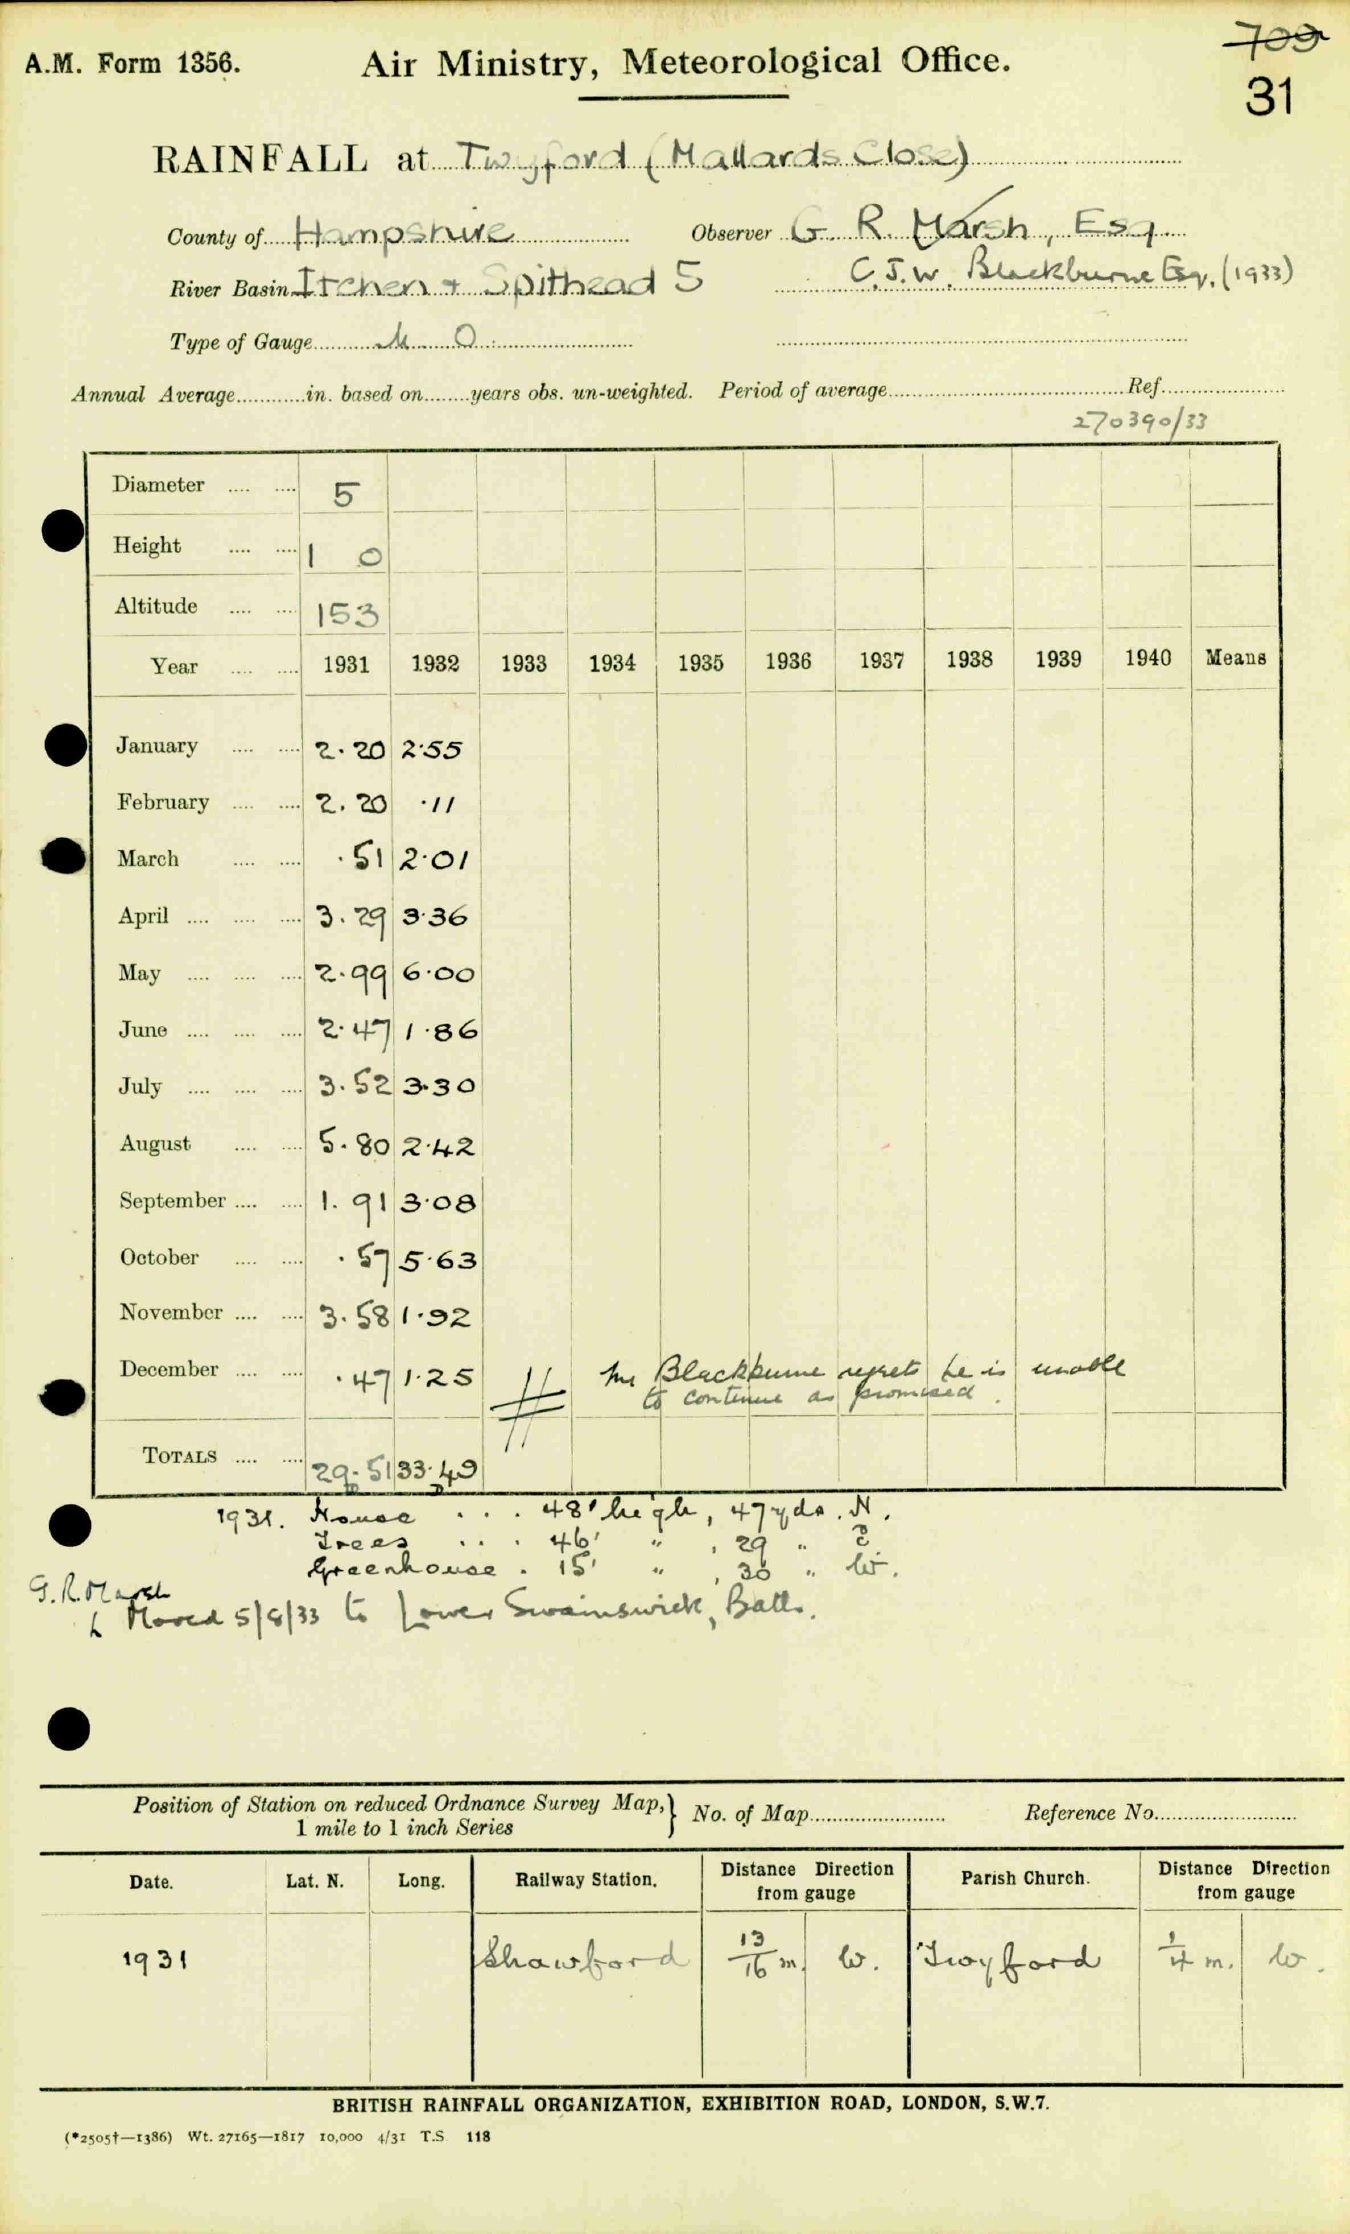 A.M. Form 1356.
Air Ministry, Meteorological Office.
709
31
RAINFALL at Twyford (Mallards Close)
County of Hampshire Observer G. R. Marsh, Esq
River Basin Itchen + Spithead 5 C.J.W. Blackburne Esq. (1933)
Type of Gauge M O
Annual Average in. based on years obs. un-weighted. Period of average Ref.
270390/33
Diameter 5
Height 1 0
Altitude 153
Year 1931 1932 1933 1934 1935 1936 1937 1938 1939 1940 Means
January 2.20 2.55
February 2.20 .11
March .51 2.01
April 3.29 3.36
May 2.99 6.00
June 2.47 1.86
July 3.52 3.30
August 5.80 2.42
September 1.91 3.08
October .57 5.63
November 3.58 1.92
December .47 1.25
Mr Blackburne regrets he is unable
to continue as promised.
TOTALS 29.51 33.49
1931. House . . . 48' high, 47 yds. N.
Trees . . . 46' " , 29 " E.
Greenhouse . 15' " , 30 " W.
G.R. Marsh
Moved 5/8/33 to Lower Swainswick, Bath.
Position of Station on reduced Ordnance Survey Map,} No. of Map Reference No.
1 mile to 1 inch Series
Date. Lat. N. Long. Railway Station. Distance Direction from gauge Parish Church. Distance Direction from gauge
1931 Shawford 13/16 m. W. Twyford 1/4 m. W.
BRITISH RAINFALL ORGANIZATION, EXHIBITION ROAD, LONDON, S.W.7.
(*2505†—1386) Wt. 27165—1817 10,000 4/31 T.S. 118